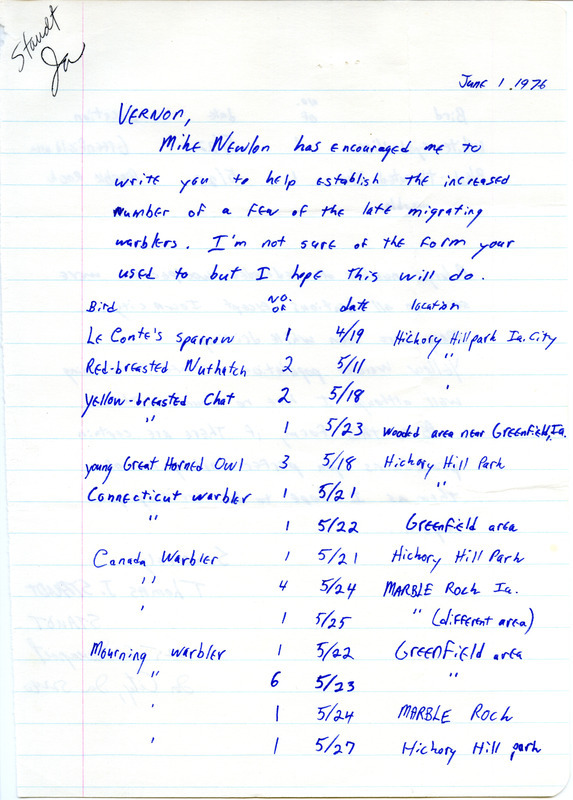 Staudt
Ja
June 1, 1976
Vernon,
Mike Newlon has encouraged me to
write you to help establish the increased
number of a few of the late migrating
warblers. I'm not sure of the form your
used to but I hope this will do.
Bird No. of date location
Le Conte's sparrow 1 4/19 Hickory Hill park Ia. City
Red-breasted Nuthatch 2 5/11 "
Yellow-breasted Chat 2 5/18 "
" 1 5/23 wooded area near Greenfield, Ia.
young Great Horned Owl 3 5/18 Hickory Hill Park
Connecticut warbler 1 5/21 "
" 1 5/22 Greenfield area
Canada Warbler 1 5/21 Hickory Hill Park
" 4 5/24 MARBLE Rock Ia.
" 1 5/25 " (different area)
Mourning warbler 1 5/22 Greenfield area
" 6 5/23 "
" 1 5/24 MARBLE Rock
" 1 5/27 Hickory Hill park